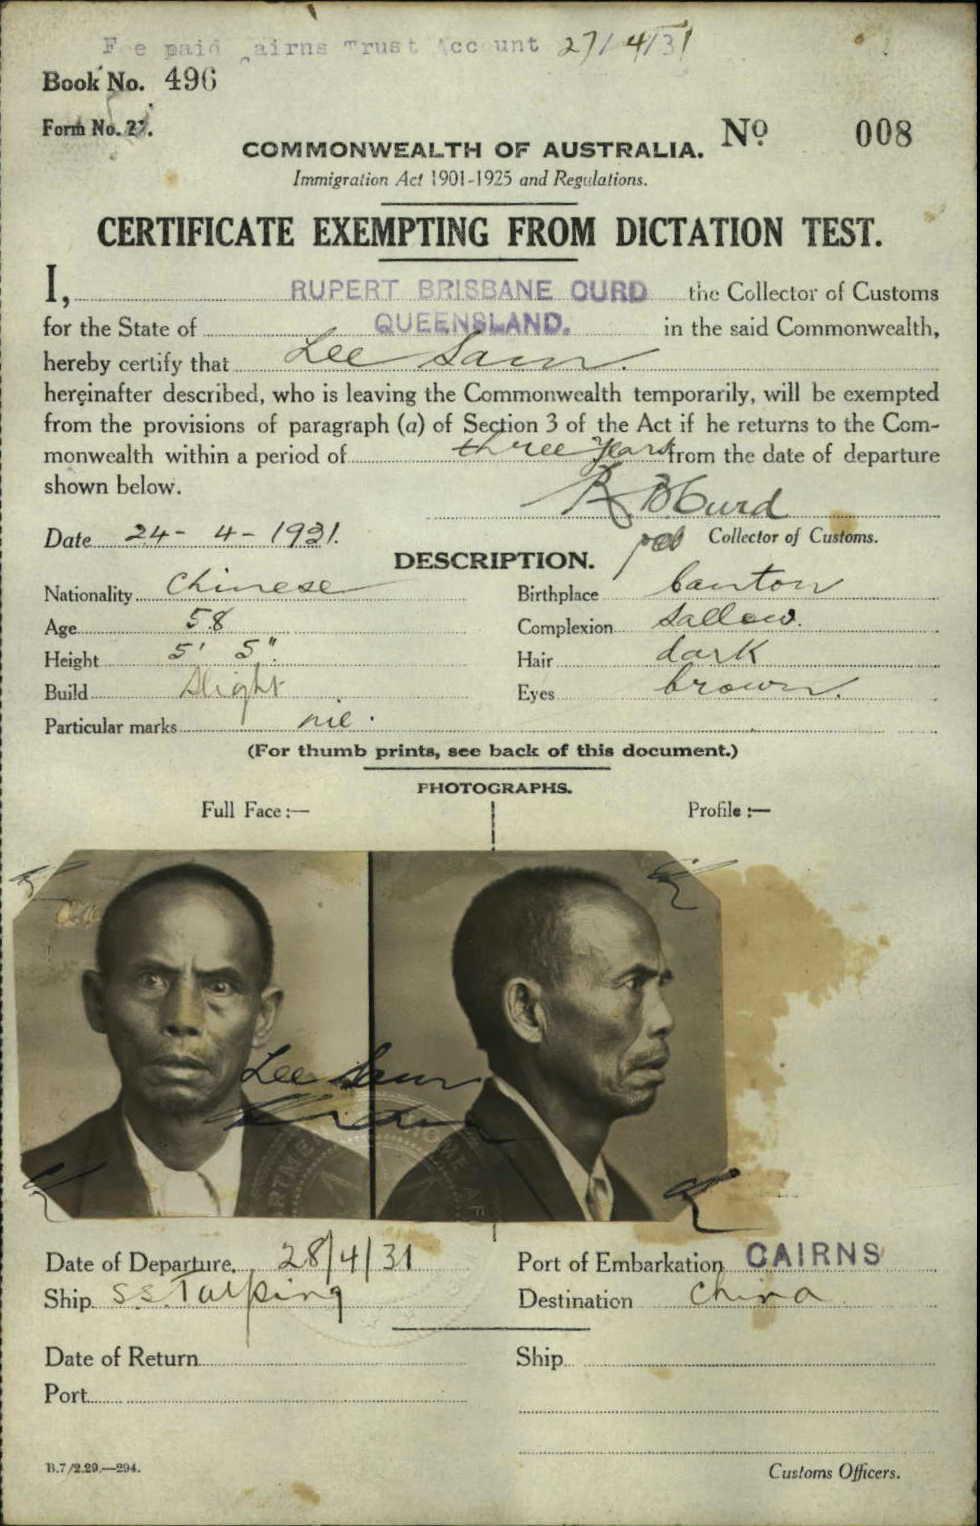 Fee paid Cairns Trust Account 27/4/31
Book No. 496
Form No. 21.
COMMONWEALTH OF AUSTRALIA. No 008
Immigration Act 1901-1925 and Regulations.
CERTIFICATE EXEMPTING FROM DICTATION TEST.
I, RUPERT BRISBANE CURD the Collector of Customs
for the State of QUEENSLAND. in the said Commonwealth,
hereby certify that Lee Sam.
hereinafter described, who is leaving the Commonwealth temporarily, will be exempted
from the provisions of paragraph (a) of Section 3 of the Act if he returns to the Com-
monwealth within a period of three years from the date of departure
shown below.
R B Curd
Date 24-4-1931. Collector of Customs.
DESCRIPTION.
Nationality Chinese Birthplace Canton
Age 58 Complexion Sallow.
Height 5' 5" Hair dark
Build Slight Eyes brown.
Particular marks nil.
(For thumb prints, see back of this document.)
PHOTOGRAPHS.
Full Face :— Profile :—
Lee Sam
Date of Departure 28/4/31 Port of Embarkation CAIRNS
Ship S.S. Taiping Destination China
Date of Return Ship
Port
B.7/2.29.—294. Customs Officers.